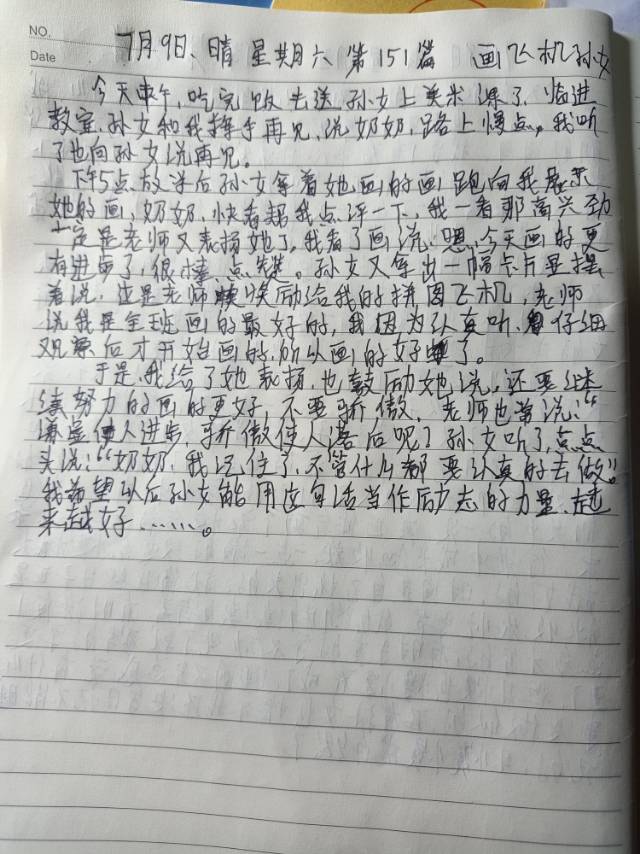 NO.
Date
7月9日、晴 星期六 第151篇 画飞机孙女
今天中午,吃完饭去送孙女上美术课了,临进
教室,孙女和我挥手再见,说奶奶,路上慢点,我听
了也向孙女说再见。
下午5点,放学后孙女拿着她画的画跑向我展示
她的画,奶奶,快看帮我点评一下,我一看那高兴劲
一定是老师又表扬她了,我看了画说,嗯,今天画的更
有进步了,很棒,点赞。孙女又拿出一幅卡片显摆
着说,这是老师奖励给我的拼图飞机,老师
说我是全班画的最好的,我因为认真听、仔细
观察后才开始画的,所以画的好了。
于是,我给了她表扬,也鼓励她说,还要继
续努力的画的更好,不要骄傲,老师也常说:“
谦虚使人进步,骄傲使人落后呢?孙女听了,点点
头说:“奶奶,我记住了,不管什么都要认真的去做”。
我希望以后孙女能用这句话当作励志的力量,越
来越好……。